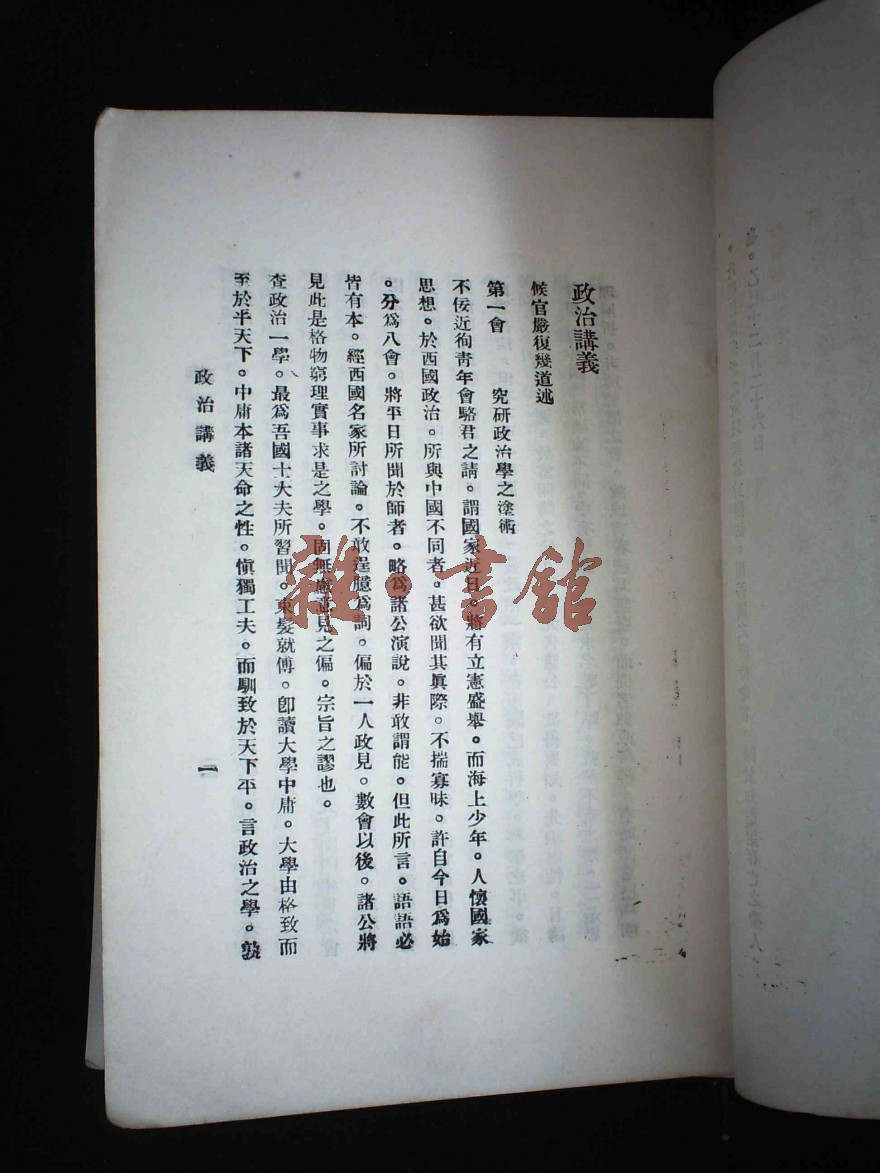 政治講義
候官嚴復幾道述
第一會　究研政治學之塗術
不佞近徇青年會駱君之請。謂國家近日。將有立憲盛舉。而海上少年。人懷國家
思想。於西國政治。所與中國不同者。甚欲聞其眞際。不揣寡昧。許自今日爲始
。分爲八會。將平日所聞於師者。略爲諸公演說。非敢謂能。但此所言。語語必
皆有本。經西國名家所討論。不敢逞臆爲制。偏於一人政見。數會以後。諸公將
見此是格物窮理實事求是之學。固無處意見之偏。宗旨之謬也。
查政治一學。最爲吾國士大夫所習聞。束髮就傅。卽讀大學中庸。大學由格致而
至於平天下。中庸本諸天命之性。愼獨工夫。而馴致於天下平。言政治之學。孰
政治講義
一
雜·書館